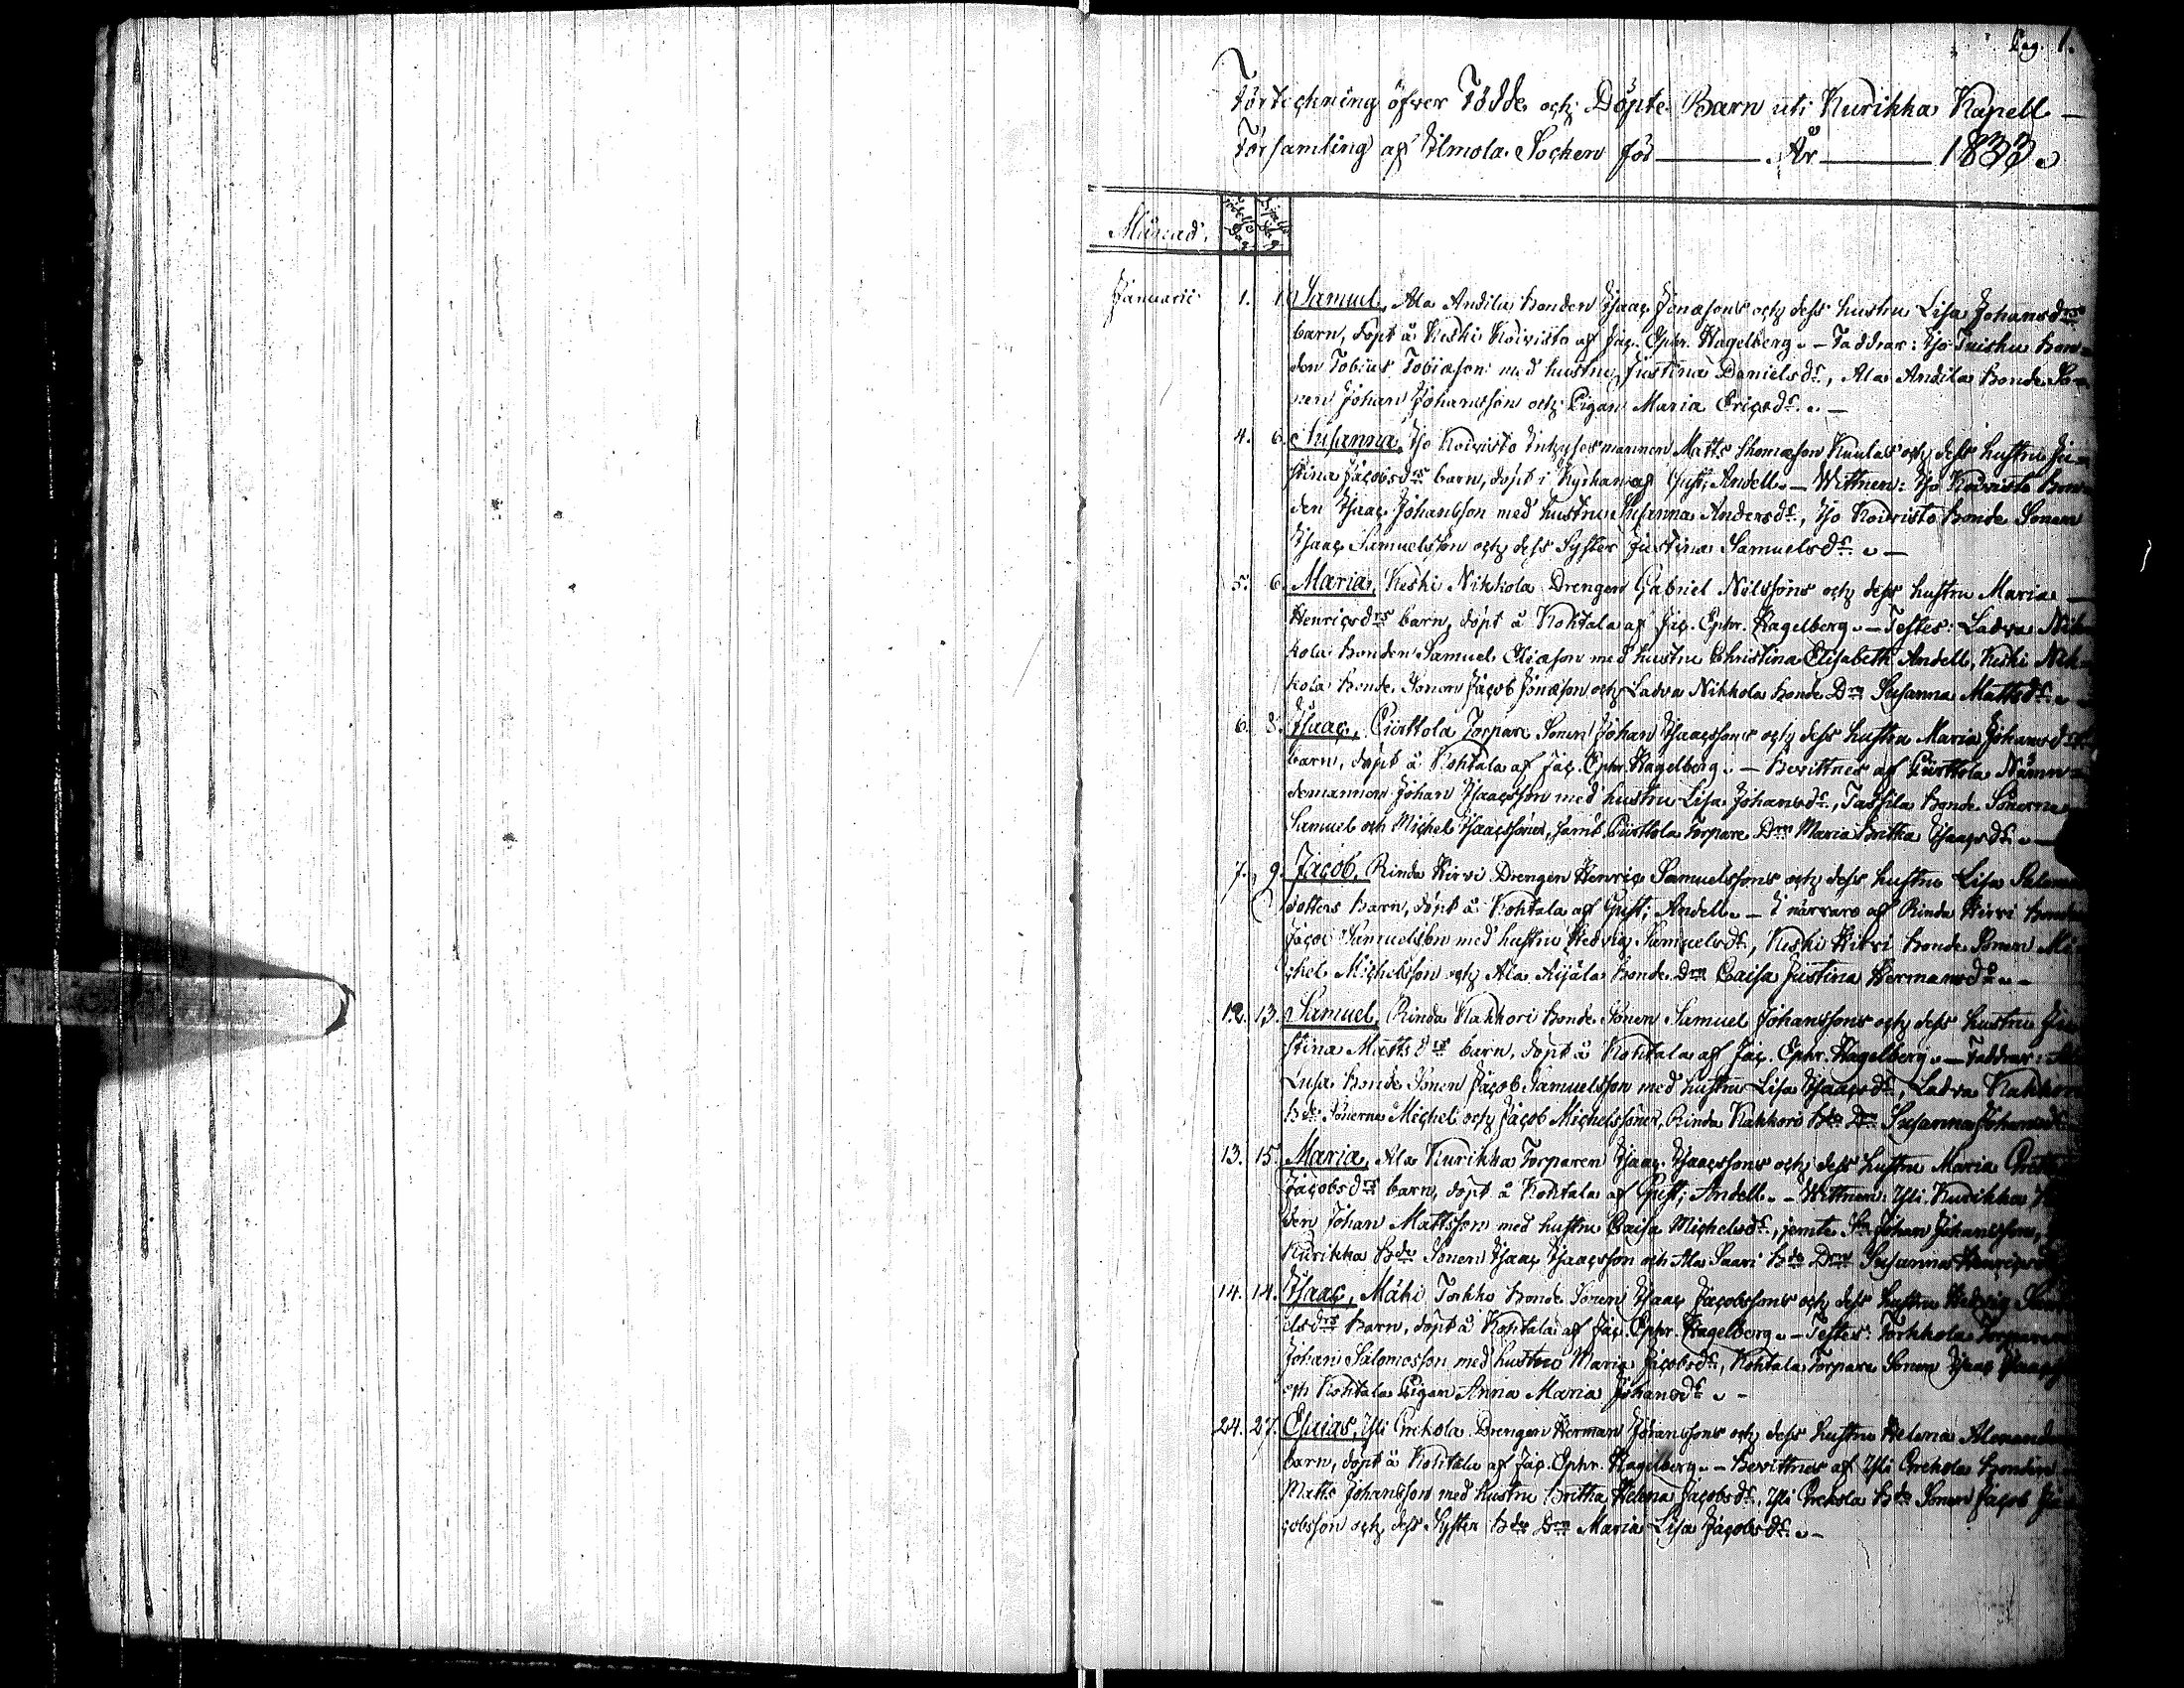 Pag. 1.
Förteckning öfver Födde och Döpte Barn uti Kurikka Kapell
Församling af Ilmola Sochen för År 1833.
Månad. Födelse Dag Döpelse Dag
Januarii 1. 1. Samuel, Ala Andila bonden Isaac Jonæsons och dess hustru Lisa Johansdrs
barn, döpt å Keski Koivisto af Jac. Ephr. Hagelberg. – Faddrar: Iso Tuisku bon-
den Tobias Tobiæson med hustru Justina Danielsdr, Ala Andila bonde So-
nen Johan Johansson och Pigan Maria Ericsdr. –
4. 6. Susanna, Iso Koivisto Inhysesmannen Matts Thomæson Kuulas och dess hustru Ju-
stina Jacobsdrs barn, döpt i Kyrkan af Gust: Andell. – Wittnen: Iso Koivisto bon-
den Isaac Johansson med hustru Susanna Andersdr, Iso Koivisto bonde Sonen
Isaac Samuelsson och dess Syster Justina Samuelsdr. –
5. 6. Maria, Keski Nikkola Drengen Gabriel Nilssons och dess hustru Maria
Henricsdrs barn, döpt å Kohtala af Jac. Ephr. Hagelberg. – Testes: Ladva Nik-
kola bonden Samuel Eliæson med hustru Christina Elisabeth Andell, Keski Nik-
kola bonde Sonen Jacob Jonæson och Ladva Nikkola bonde Drn Susanna Mattsdr.
6. 8. Isaac, Piirttola Torpare Sonen Johan Isaacssons och dess hustru Maria Johansdrs
barn, döpt å Kohtala af Jac. Ephr. Hagelberg. – Bevittnes af Piirttola Nämn-
demannen Johan Isaacsson med hustru Lisa Johansdr, Tassila bonde Sönerna
Samuel och Michel Isaacssöner, samt Piirttola Torpare Drn Maria Britha Isaacsdr. –
7. 9. Jacob, Rinda Hirvi Drengen Henric Samuelssons och dess hustru Lisa
dotters barn, döpt å Kohtala af Gust: Andell. – I närvaro af Rinda Hirvi
Jacob Samuelsson med hustru Hedvig Samuelsdr, Keski Hirvi bonde Sonen Mi-
chel Michelsson och Ala Äijälä bonde Drn Caisa Justina Hermansdr. –
12. 13. Samuel, Rinda Kakkori bonde Sonen Samuel Johanssons och dess hustru Ju-
stina Mattsdrs barn, döpt å Kohtala af Jac. Ephr. Hagelberg. – Faddrar:
Lusa bonde Sonen Jacob Samuelsson med hustru Lisa Isaacsdr, Ladva Kakkori
Bde Sönerna Michel och Jacob Michelssöner, Rinda Kakkori Bde Drn Susanna Johansdr
13. 15. Maria, Ala Kurikka Torparen Isaac Isaacssons och dess hustru Maria
Jacobsdrs barn, döpt å Kohtala af Gust: Andell. – Wittnen: Yli Kurikka
den Johan Mattsson med hustru Caisa Michelsdr, jemte Sn Johan Johansson,
Kurikka Bde Sonen Isaac Isaacsson och Ala Saari Bde Drn Susanna Henricsdr
14. 14. Isaac, Mäki Torkko bonde Sonen Isaac Jacobssons och dess hustru Hedvig
elsdrs barn, döpt å Kohtala af Jac. Ephr. Hagelberg. – Testes: Torkkola Torparen
Johan Salomosson med hustru Maria Jacobsdr, Kohtala Torpare Sonen Isaac
och Kohtala Pigan Anna Maria Johansdr. –
24. 27. Esaias, Yli Grekola Drengen Herman Johanssons och dess hustru Helena
barn, döpt å Kohtala af Jac. Ephr. Hagelberg. – Bevittnes af Yli Grekola bonden
Matts Johansson med hustru Britha Helena Jacobsdr, Yli Grekola Bde Sonen Jacob Ja-
cobsson och dess Syster Bde Drn Maria Lisa Jacobsdr. –